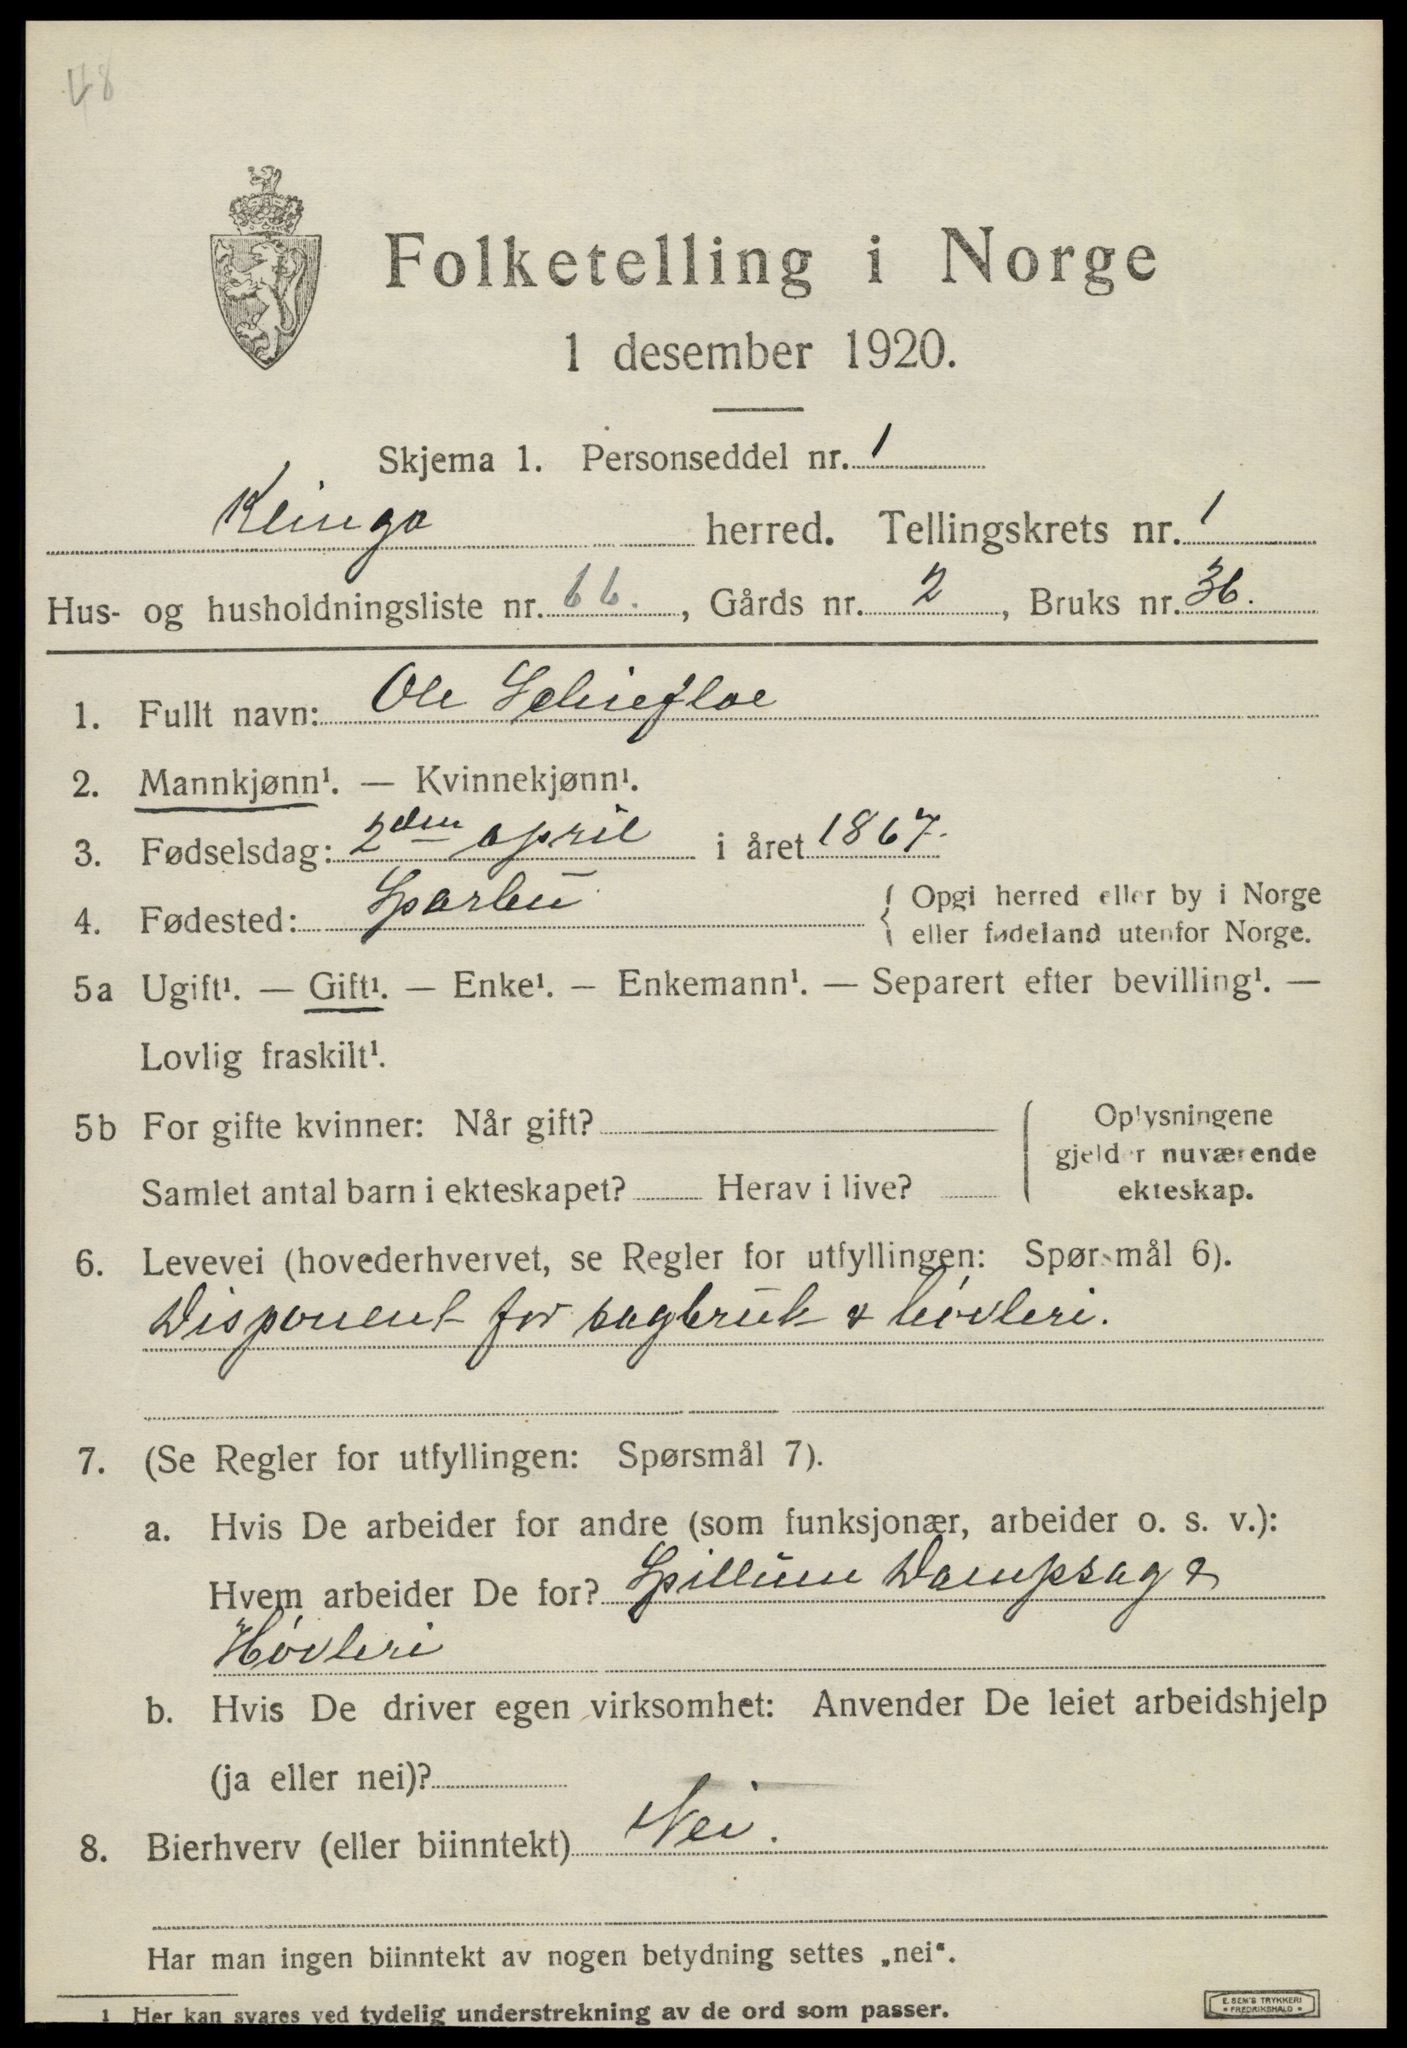 48
Folketelling i Norge
1 desember 1920.
Skjema 1. Personseddel nr. 1
Klinga herred. Tellingskrets nr. 1
Hus- og husholdningsliste nr. 66., Gårds nr. 2, Bruks nr. 36.
1. Fullt navn: Ole Schiefloe
2. Mannkjønn¹. — Kvinnekjønn¹.
3. Fødselsdag: 2den april i året 1867.
4. Fødested: Sparbu { Opgi herred eller by i Norge
eller fødeland utenfor Norge.
5a Ugift¹. — Gift¹. — Enke¹. — Enkemann¹. — Separert efter bevilling¹. —
Lovlig fraskilt¹.
5b For gifte kvinner: Når gift?
Samlet antal barn i ekteskapet? Herav i live?
{ Oplysningene
gjelder nuværende
ekteskap.
6. Levevei (hovederhvervet, se Regler for utfyllingen: Spørsmål 6).
Disponent for sagbruk & høvleri.
7. (Se Regler for utfyllingen: Spørsmål 7).
a. Hvis De arbeider for andre (som funksjonær, arbeider o. s. v.):
Hvem arbeider De for? Spillum Dampsag &
Høvleri
b. Hvis De driver egen virksomhet: Anvender De leiet arbeidshjelp
(ja eller nei)?
8. Bierhverv (eller biinntekt) Nei.
Har man ingen biinntekt av nogen betydning settes „nei“.
1 Her kan svares ved tydelig understrekning av de ord som passer.
E. SEM'S TRYKKERI
FREDRIKSHALD